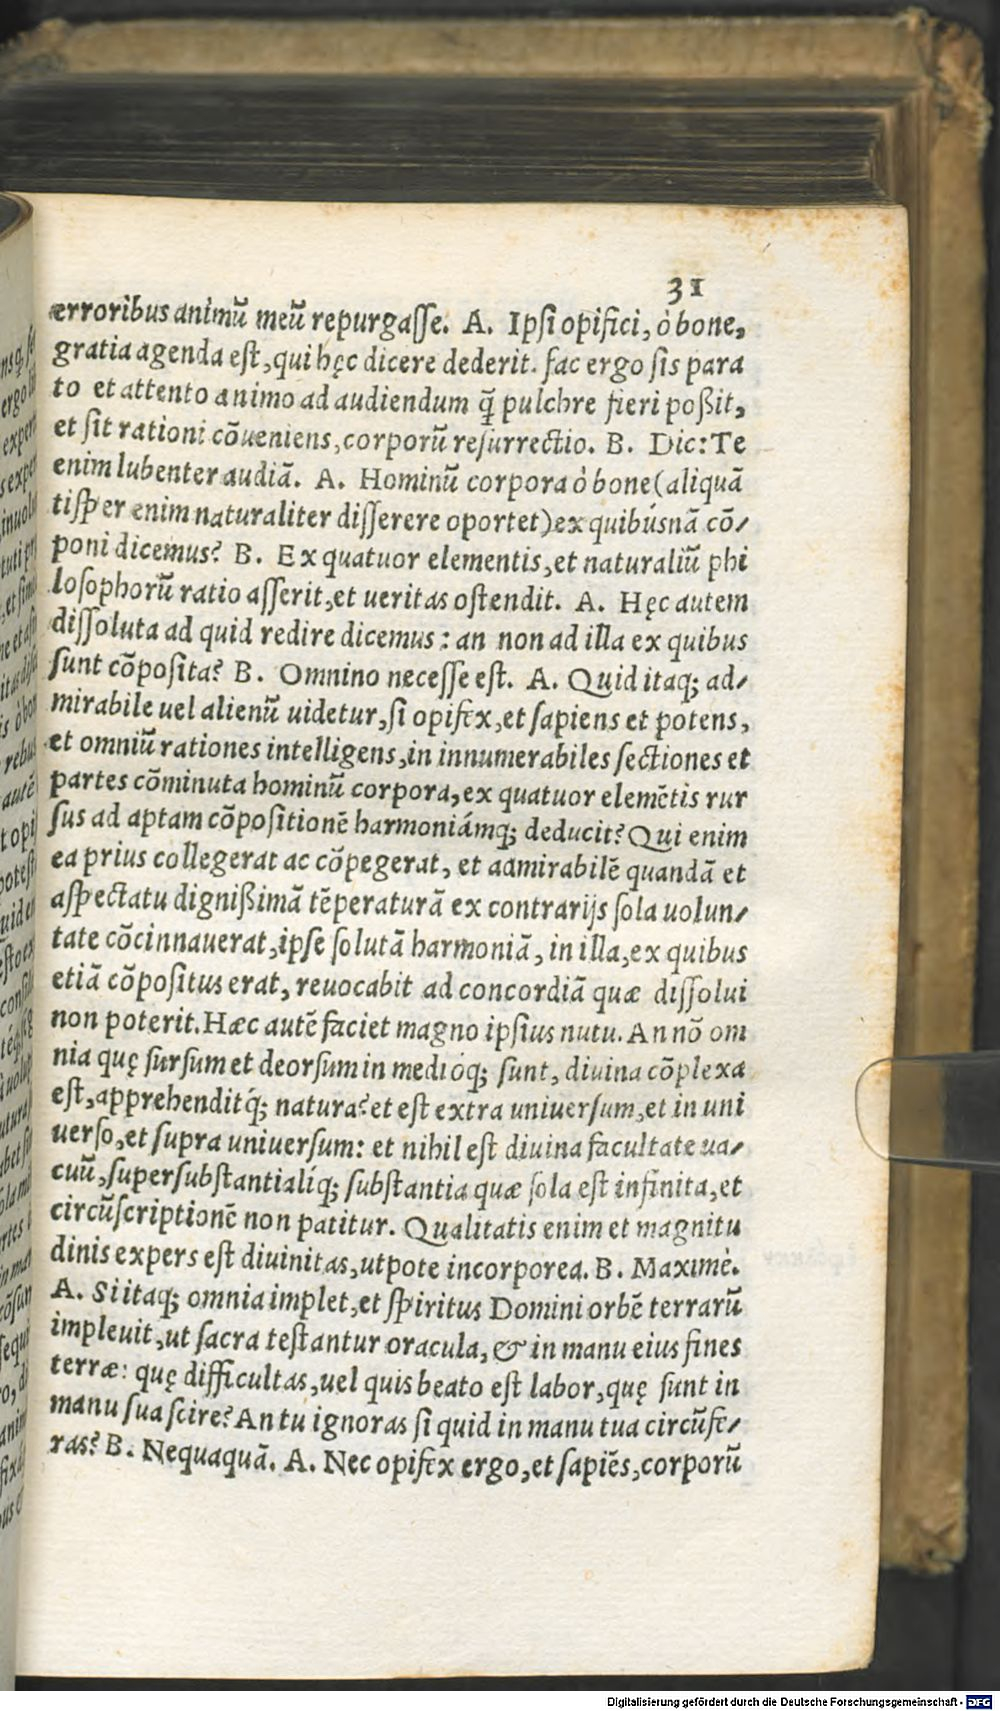 31
erroribus animū meū repurgaſſe. A. Ipſi opifici, ò bone,
gratia agenda eſt, qui hęc dicere dederit. fac ergo ſis para
to et attento animo ad audiendum q̄ pulchre fieri poßit,
et ſit rationi cōueniens, corporū reſurrectio. B. Dic: Te
enim lubenter audiā. A. Hominū corpora ò bone (aliquā
tiſper enim naturaliter diſſerere oportet) ex quibúsnā cō/
poni dicemus? B. Ex quatuor elementis, et naturaliū phi
loſophorū ratio aſſerit, et ueritas oſtendit. A. Hęc autem
diſſoluta ad quid redire dicemus: an non ad illa ex quibus
ſunt cōpoſita? B. Omnino neceſſe eſt. A. Quid itaq; ad/
mirabile uel alienū uidetur, ſi opifex, et ſapiens et potens,
et omniū rationes intelligens, in innumerabiles ſectiones et
partes cōminuta hominū corpora, ex quatuor elemētis rur
ſus ad aptam cōpoſitionē harmoniámq; deducit? Qui enim
ea prius collegerat ac cōpegerat, et admirabilē quandā et
aſpectatu dignißimā tēperaturā ex contrarijs ſola uolun/
tate cōcinnauerat, ipſe ſolutā harmoniā, in illa, ex quibus
etiā cōpoſitus erat, reuocabit ad concordiā quæ diſſolui
non poterit. Hæc autē faciet magno ipſius nutu. An nō om
nia quę ſurſum et deorſum in medióq; ſunt, diuina cōplexa
eſt, apprehenditq́; natura? et eſt extra uniuerſum, et in uni
uerſo, et ſupra uniuerſum: et nihil eſt diuina facultate ua/
cuū, ſuperſubſtantialíq; ſubſtantia quæ ſola eſt infinita, et
circūſcriptionē non patitur. Qualitatis enim et magnitu
dinis expers eſt diuinitas, utpote incorporea. B. Maximè.
A. Si itaq; omnia implet, et ſpiritus Domini orbē terrarū
impleuit, ut ſacra teſtantur oracula, & in manu eius fines
terræ: quę difficultas, uel quis beato eſt labor, quę ſunt in
manu ſua ſcire? An tu ignoras ſi quid in manu tua circūfe/
ras? B. Nequaquā. A. Nec opifex ergo, et ſapiēs, corporū
Digitalisierung gefördert durch die Deutsche Forschungsgemeinschaft - DFG